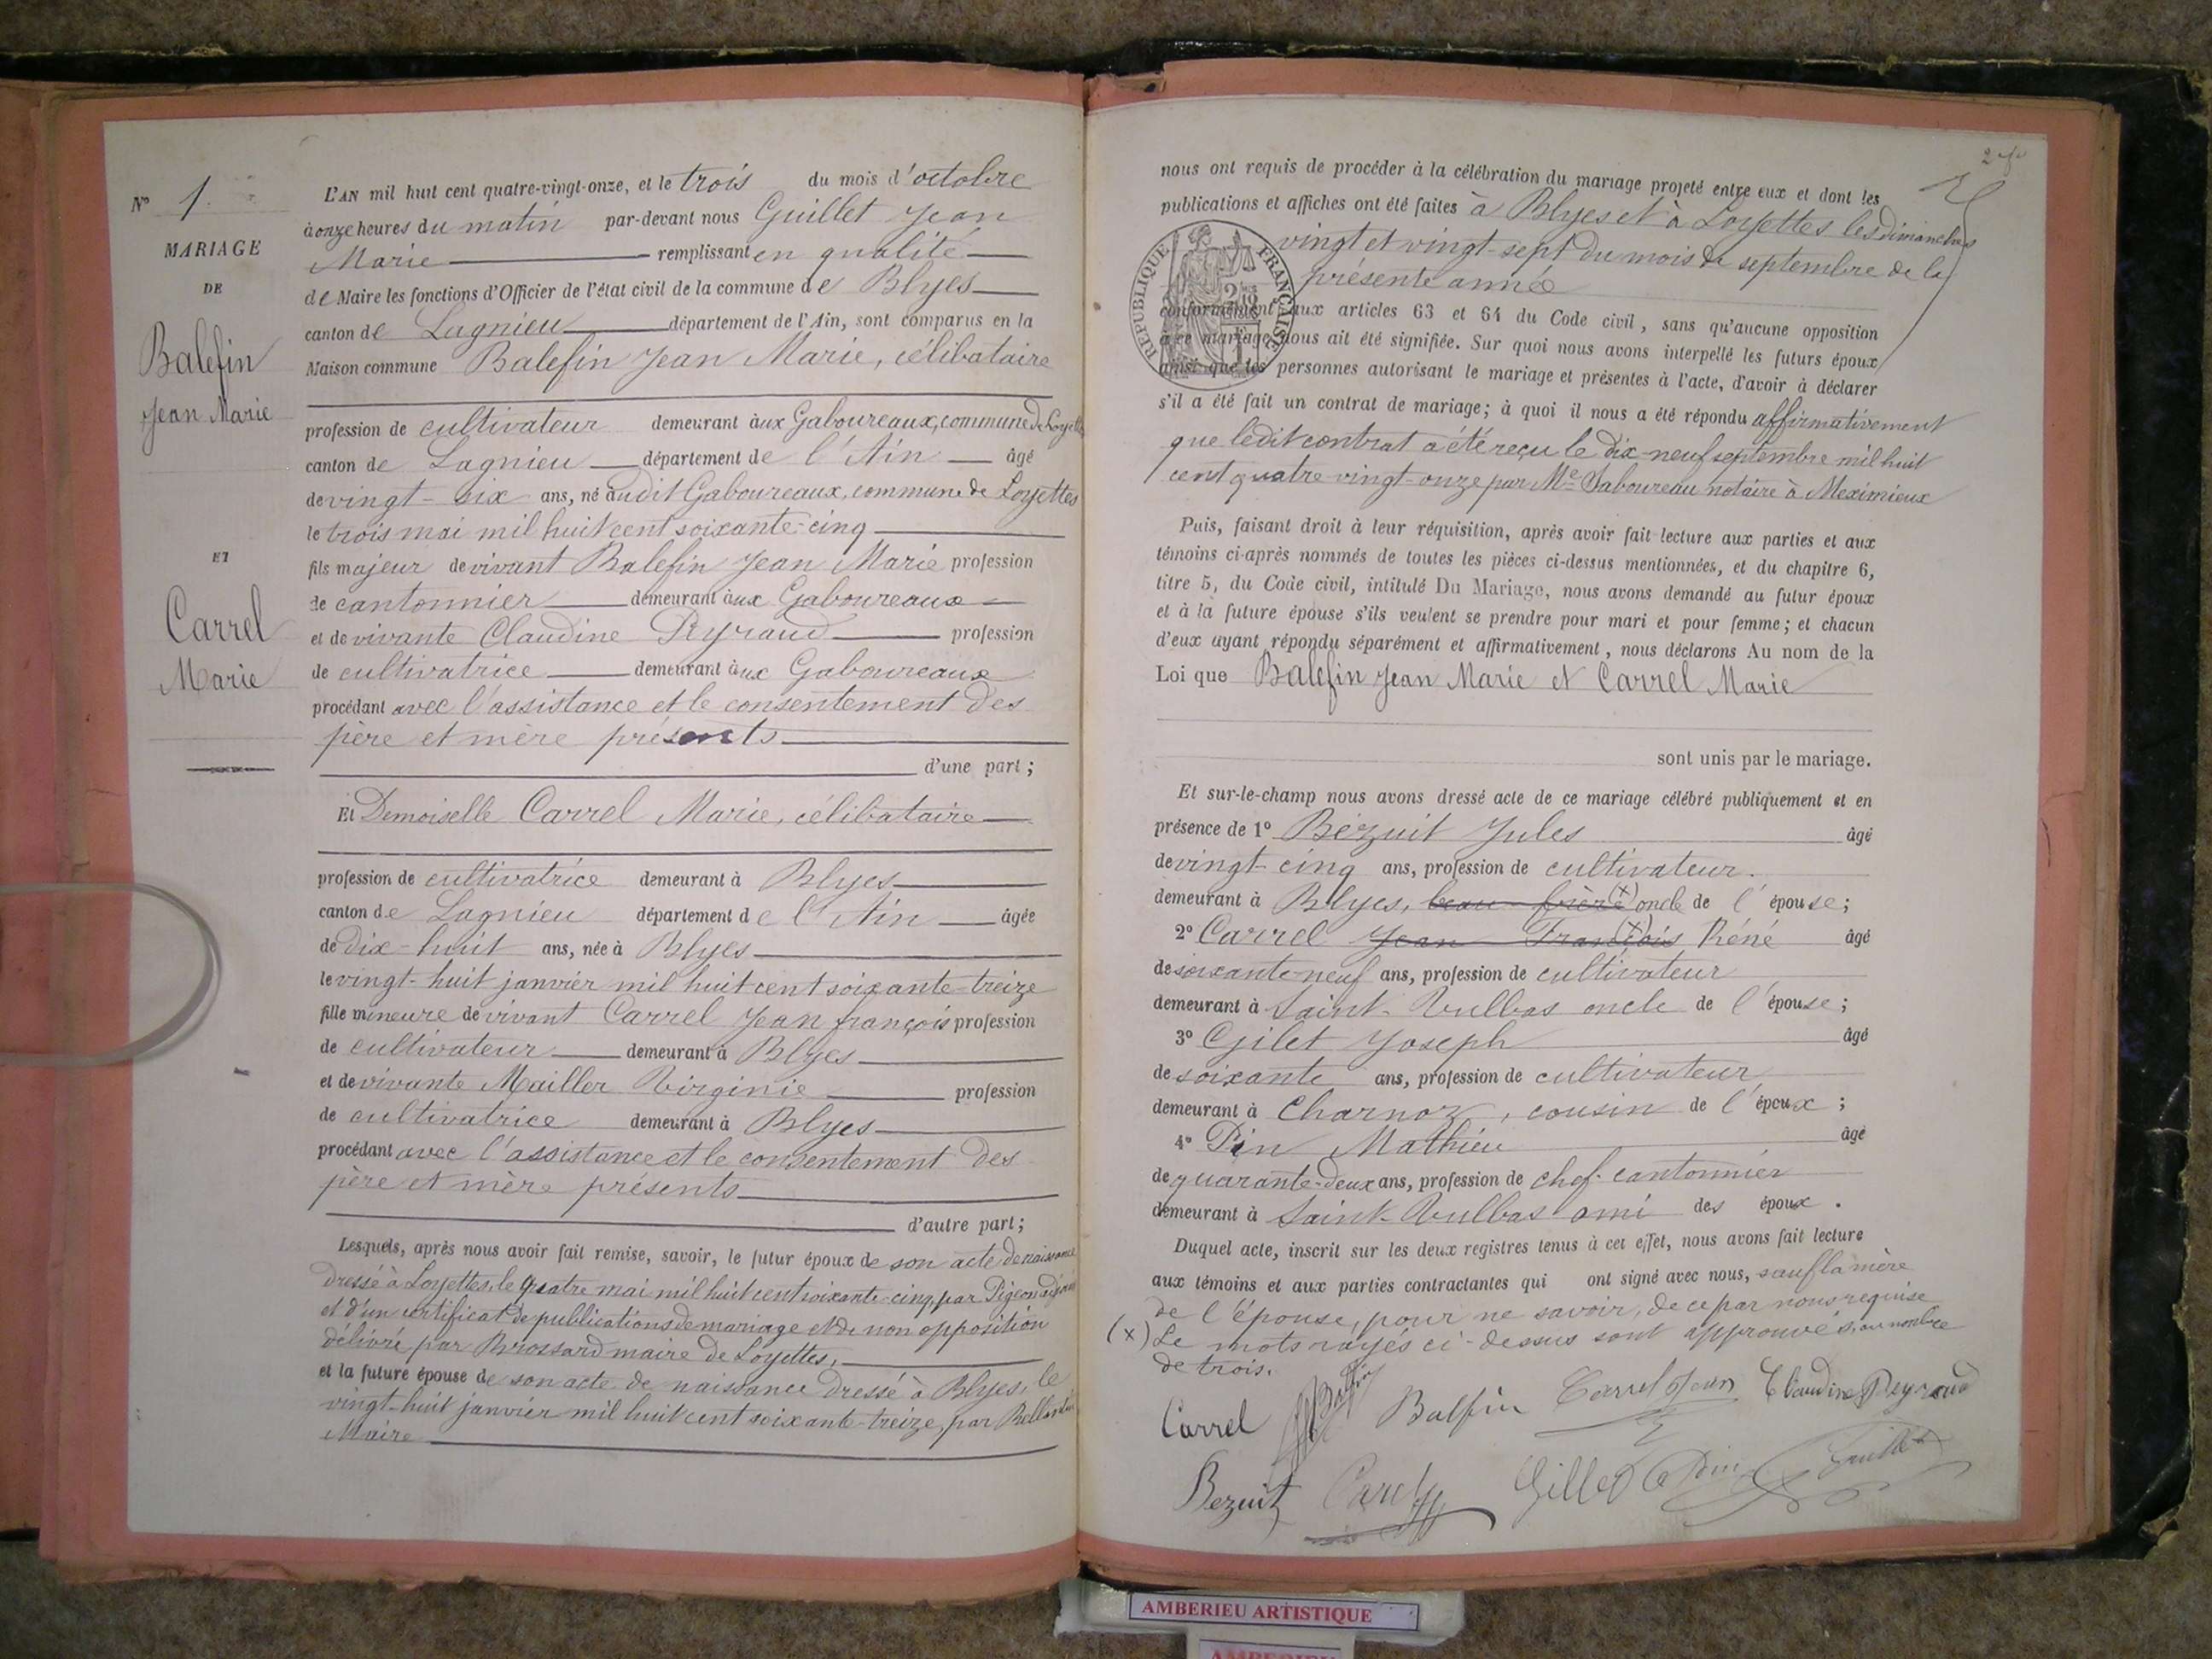 N° 1.
MARIAGE
DE
Balefin
Jean Marie
ET
Carrel
Marie
L'AN mil huit cent quatre-vingt-onze, et le trois du mois d'octobre
à onze heures du matin par-devant nous Guillet Jean
Marie remplissant en qualité
de Maire les fonctions d'Officier de l'état civil de la commune de Blyes
canton de Lagnieu département de l'Ain, sont comparus en la
Maison commune Balefin Jean Marie, célibataire
profession de cultivateur demeurant aux Gaboureaux, commune de Loyettes
canton de Lagnieu département de l'Ain âgé
de vingt-six ans, né audit Gaboureaux, commune de Loyettes
le trois mai mil huit cent soixante-cinq
fils majeur de vivant Balefin Jean Marie profession
de cantonnier demeurant aux Gaboureaux
et de vivante Claudine Peyraud profession
de cultivatrice demeurant aux Gaboureaux
procédant avec l'assistance et le consentement des
père et mère présents
d'une part;
Et Demoiselle Carrel Marie, célibataire
profession de cultivatrice demeurant à Blyes
canton de Lagnieu département de l'Ain âgée
de dix-huit ans, née à Blyes
le vingt-huit janvier mil huit cent soixante-treize
fille mineure de vivant Carrel Jean françois profession
de cultivateur demeurant à Blyes
et de vivante Mailler Virginie profession
de cultivatrice demeurant à Blyes
procédant avec l'assistance et le consentement des
père et mère présents
d'autre part;
Lesquels, après nous avoir fait remise, savoir, le futur époux de son acte de naissance
dressé à Loyettes, le quatre mai mil huit cent soixante-cinq, par Pigeon adjoint
et d'un certificat de publications de mariage et de non opposition
délivré par Brossard maire de Loyettes,
et la future épouse de son acte de naissance dressé à Blyes, le
vingt-huit janvier mil huit cent soixante-treize, par
Maire
nous ont requis de procéder à la célébration du mariage projeté entre eux et dont les
publications et affiches ont été faites à Blyes et à Loyettes les dimanches
vingt et vingt-sept du mois de septembre de la
présente année
RÉPUBLIQUE FRANÇAISE
conformément aux articles 63 et 64 du Code civil, sans qu'aucune opposition
à ce mariage nous ait été signifiée. Sur quoi nous avons interpellé les futurs époux
ainsi que les personnes autorisant le mariage et présentes à l'acte, d'avoir à déclarer
s'il a été fait un contrat de mariage; à quoi il nous a été répondu affirmativement
que ledit contrat a été reçu le dix-neuf septembre mil huit
cent quatre vingt-onze par Me Saboureau notaire à Meximieux
Puis, faisant droit à leur réquisition, après avoir fait lecture aux parties et aux
témoins ci-après nommés de toutes les pièces ci-dessus mentionnées, et du chapitre 6,
titre 5, du Code civil, intitulé Du Mariage, nous avons demandé au futur époux
et à la future épouse s'ils veulent se prendre pour mari et pour femme; et chacun
d'eux ayant répondu séparément et affirmativement, nous déclarons Au nom de la
Loi que Balefin Jean Marie et Carrel Marie
sont unis par le mariage.
Et sur-le-champ nous avons dressé acte de ce mariage célébré publiquement et en
présence de 1° Bézuit Jules âgé
de vingt-cinq ans, profession de cultivateur.
demeurant à Blyes, beau-frère (x) oncle de l'épouse;
2° Carrel Jean François (x) Réné âgé
de soixante-neuf ans, profession de cultivateur
demeurant à Saint-Vulbas oncle de l'épouse;
3° Gilet Joseph âgé
de soixante ans, profession de cultivateur
demeurant à Charnoz, cousin de l'époux;
4° Pin Mathieu âgé
de quarante-deux ans, profession de chef-cantonnier
demeurant à Saint-Vulbas ami des époux.
Duquel acte, inscrit sur les deux registres tenus à cet effet, nous avons fait lecture
aux témoins et aux parties contractantes qui ont signé avec nous, sauf la mère
de l'épouse, pour ne savoir, de ce par nous requise
(x) Le mots rayés ci-dessus sont approuvés, au nombre
de trois.
Carrel Balfin Carrel Jean Claudine Peyraud
Bezuit Carrel Gillet Pin Guillet
AMBERIEU ARTISTIQUE
AMBERIEU